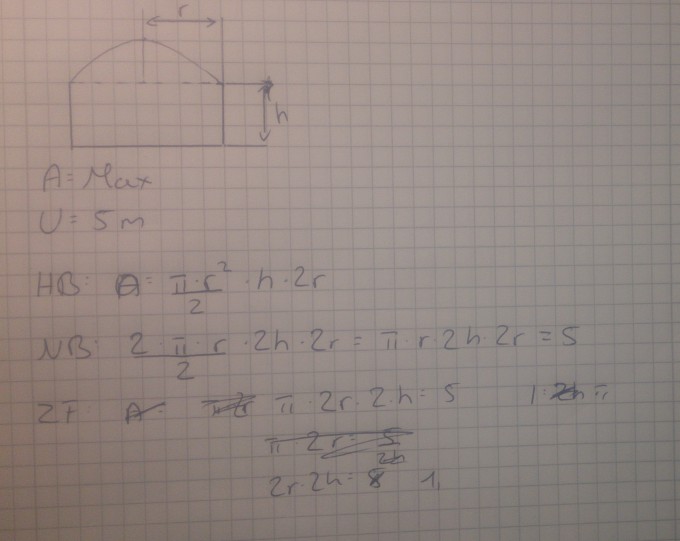 r
h
A = Max
U = 5 m
HB: A = π·r²/2 · h · 2r
NB: 2·π·r/2 · 2h · 2r = π·r·2h·2r = 5
ZF: A = π · 2r · 2 · h = 5 |: π
π · 2r = 5/2h
2r · 2h =